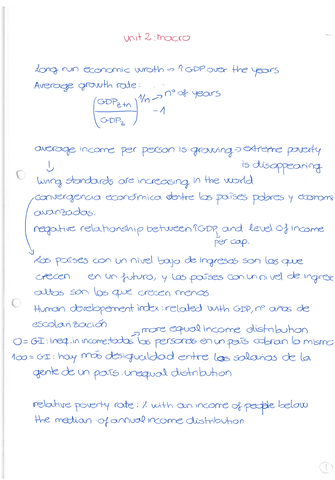 unit 2: macro
Long run economic wroth → ↑GDP over the years
Average growth rate:
(GDPt+n / GDPt)^1/n - 1 → nº of years
average income per person is growing → extreme poverty
is disappearing
↓
living standards are increasing in the world
convergencia económica entre los países pobres y econom
avanzadas.
negative relationship between ↑GDP and level of income
per cap.
Los países con un nivel bajo de ingresos son los que
crecen en un futuro, y los países con un nivel de ingreso
altos son los que crecen menos
Human developement index: related with GDP, nº años de
escolarización
→ more equal income distribution
0 = GI: ineq. in income: todas las personas en un país cobran lo mismo
100 = GI: hay más desigualdad entre los salarios de la
gente de un país. unequal distribution
relative poverty rate: % with an income of people below
the median of annual income distribution
1